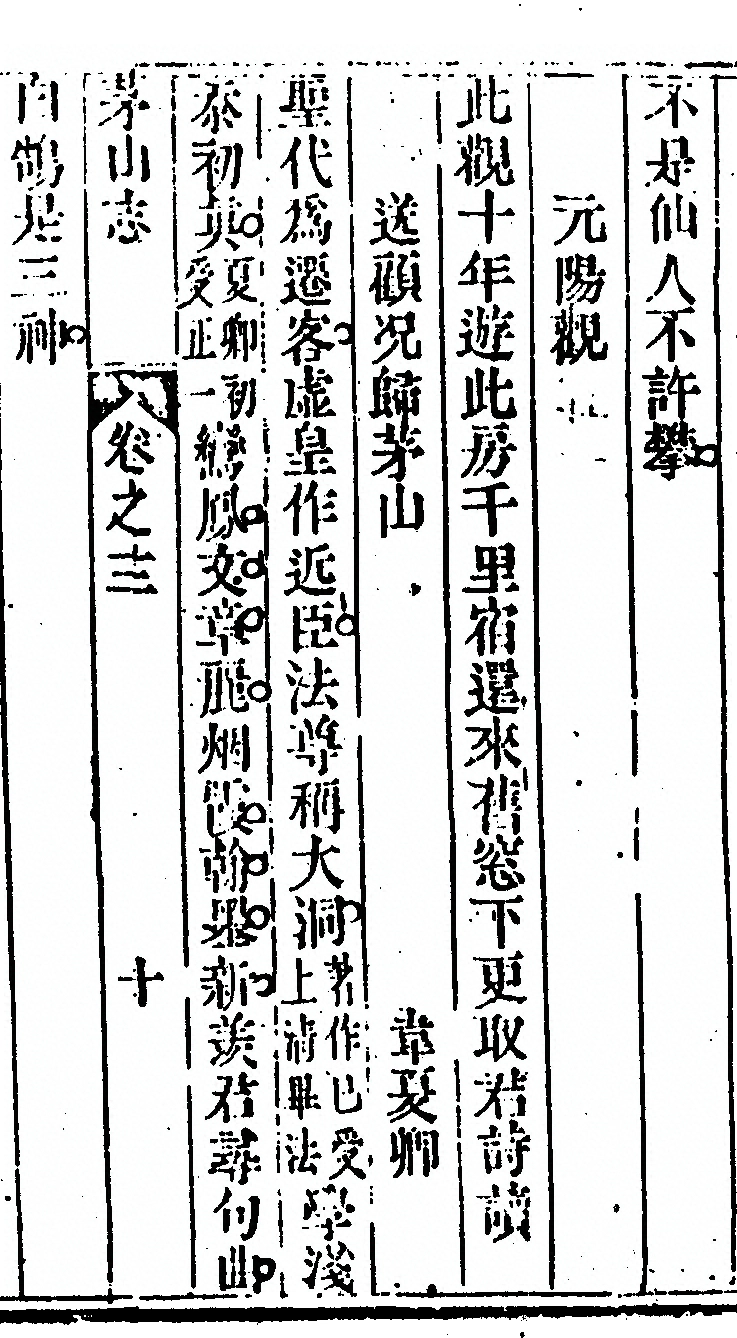 不是仙人不許攀
元陽觀
此觀十年遊此房千里宿還來舊窓下更取君詩讀
送顧况歸茅山 韋夏卿
聖代爲遷客虛皇作近臣法尊稱大洞著作已受上清畢法學淺
忝初真夏卿初受正一鸞鳳文章麗烟霞翰墨新羨君尋句曲
茅山志 卷之 十
白鵠是三神